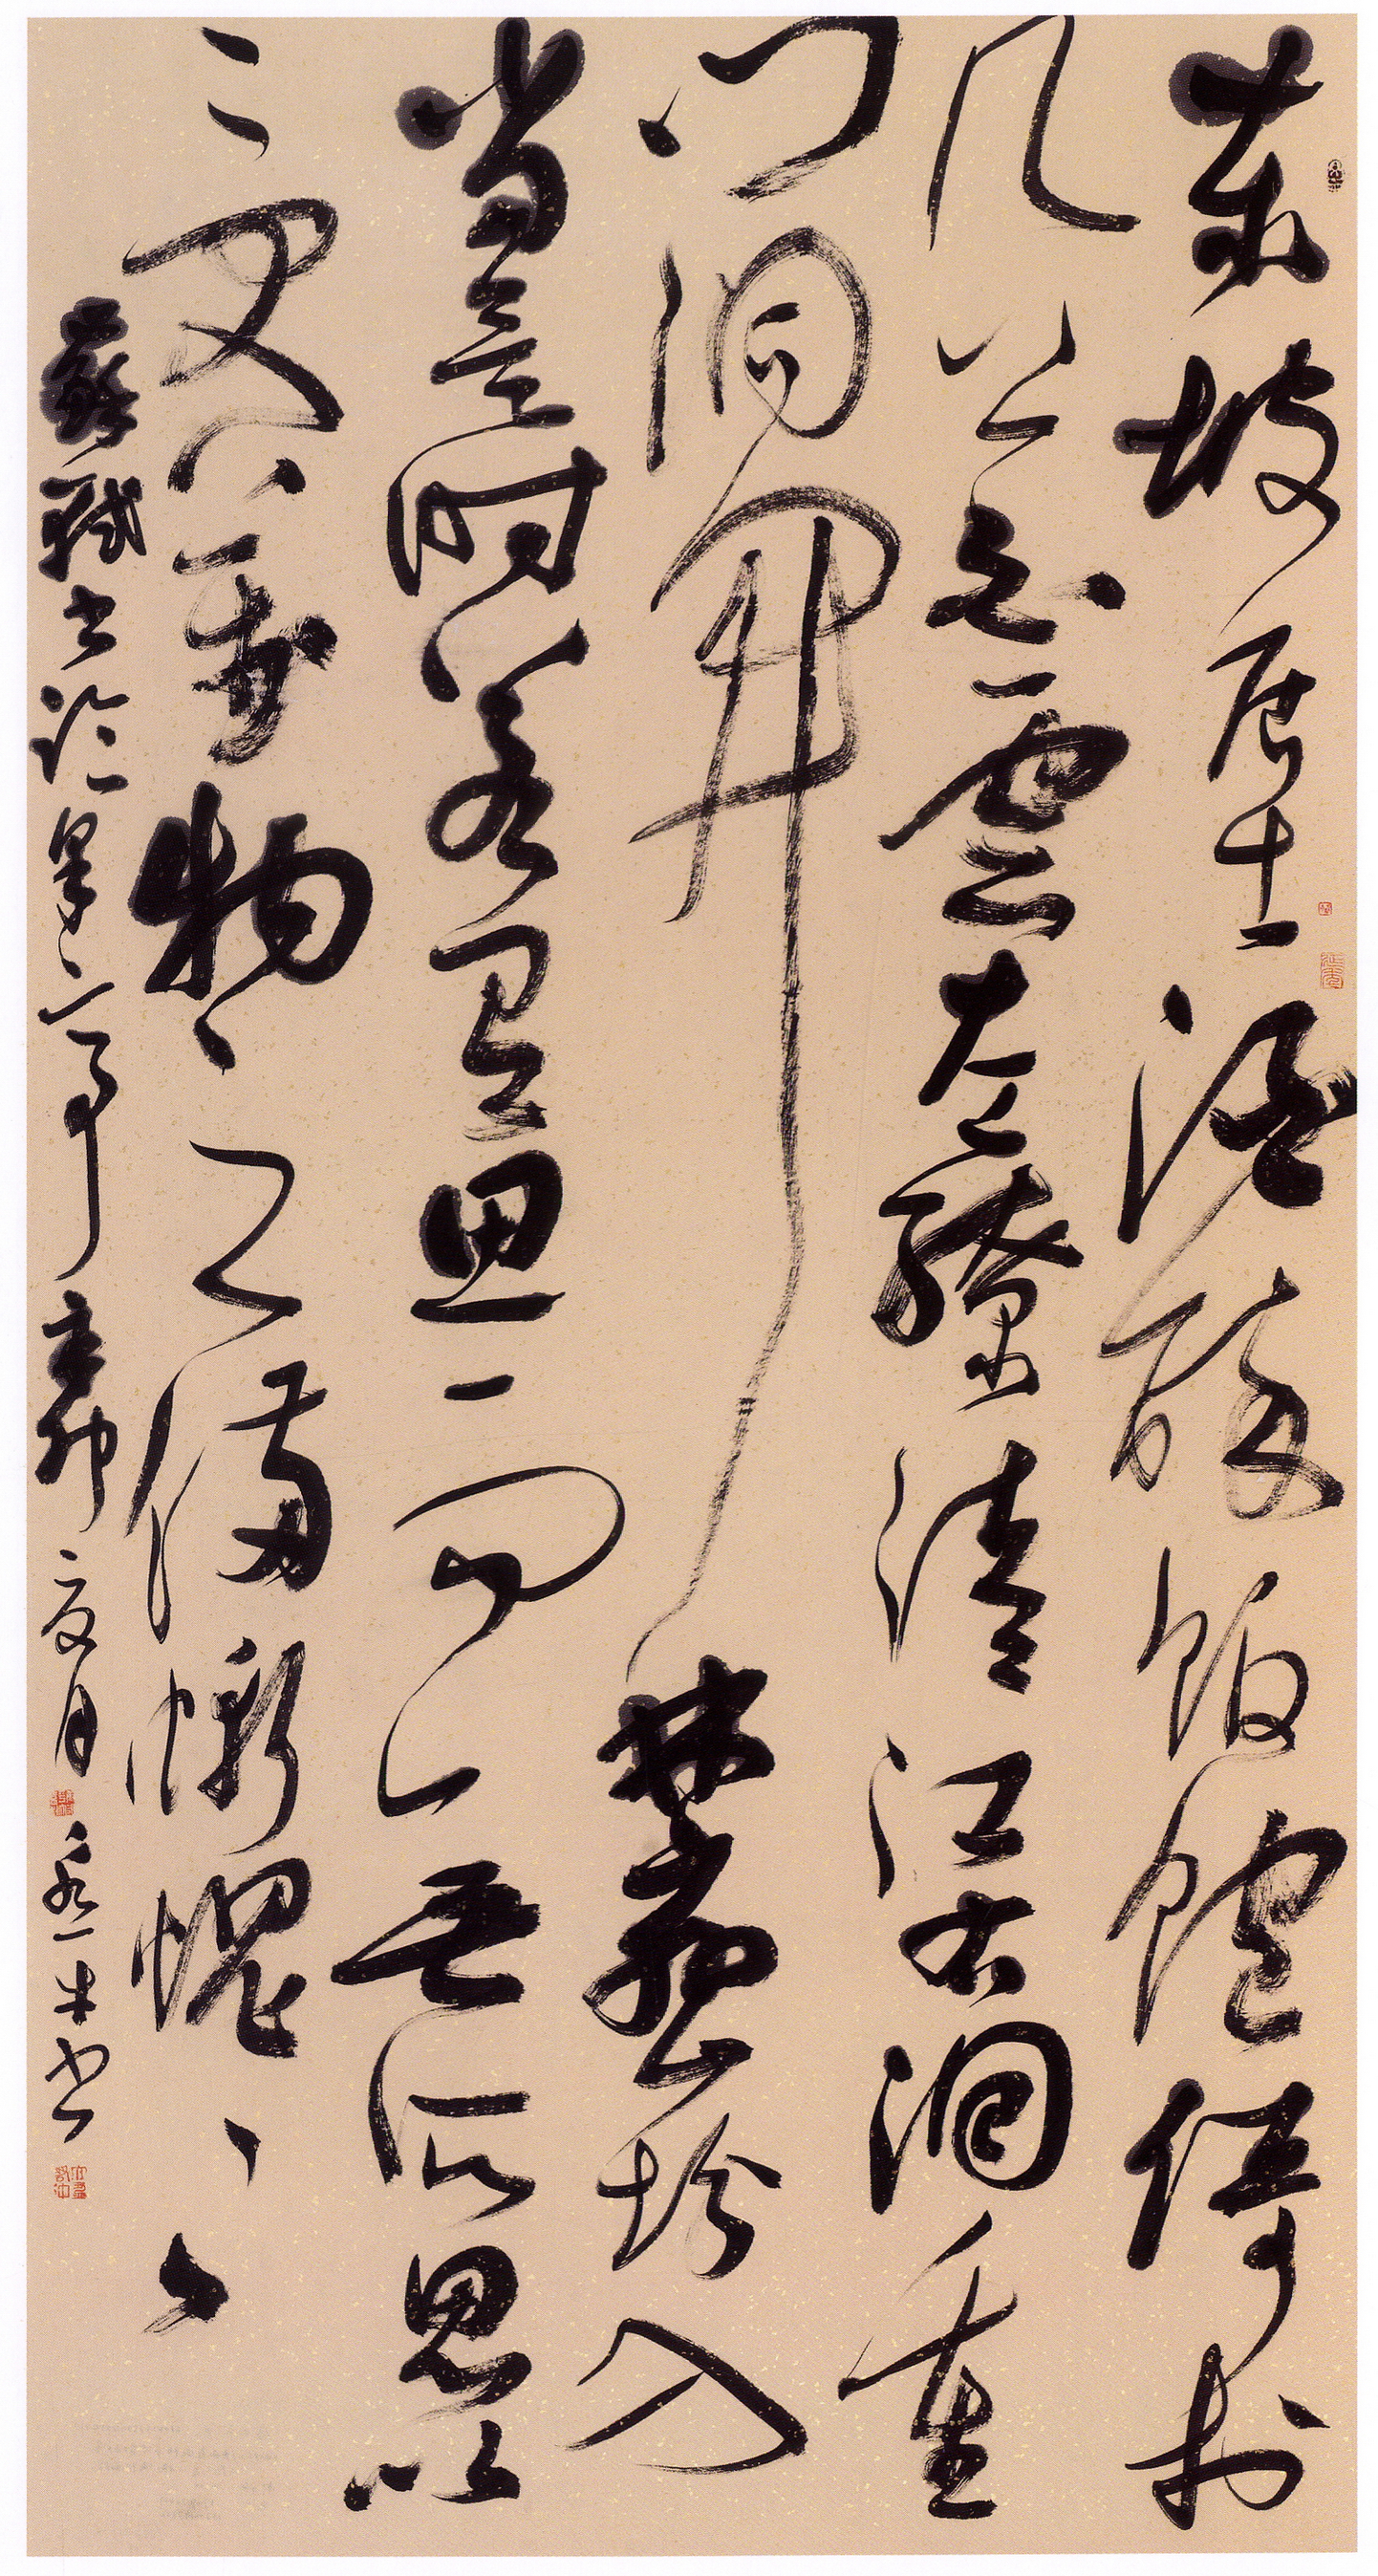 东坡居士酒醉饭饱倚于
几上白云左缭清江右洄重
门洞开林峦坌入
当是时若有思而无所思以
受万物之备惭愧惭愧
苏轼书临皋亭 辛卯夏月 书